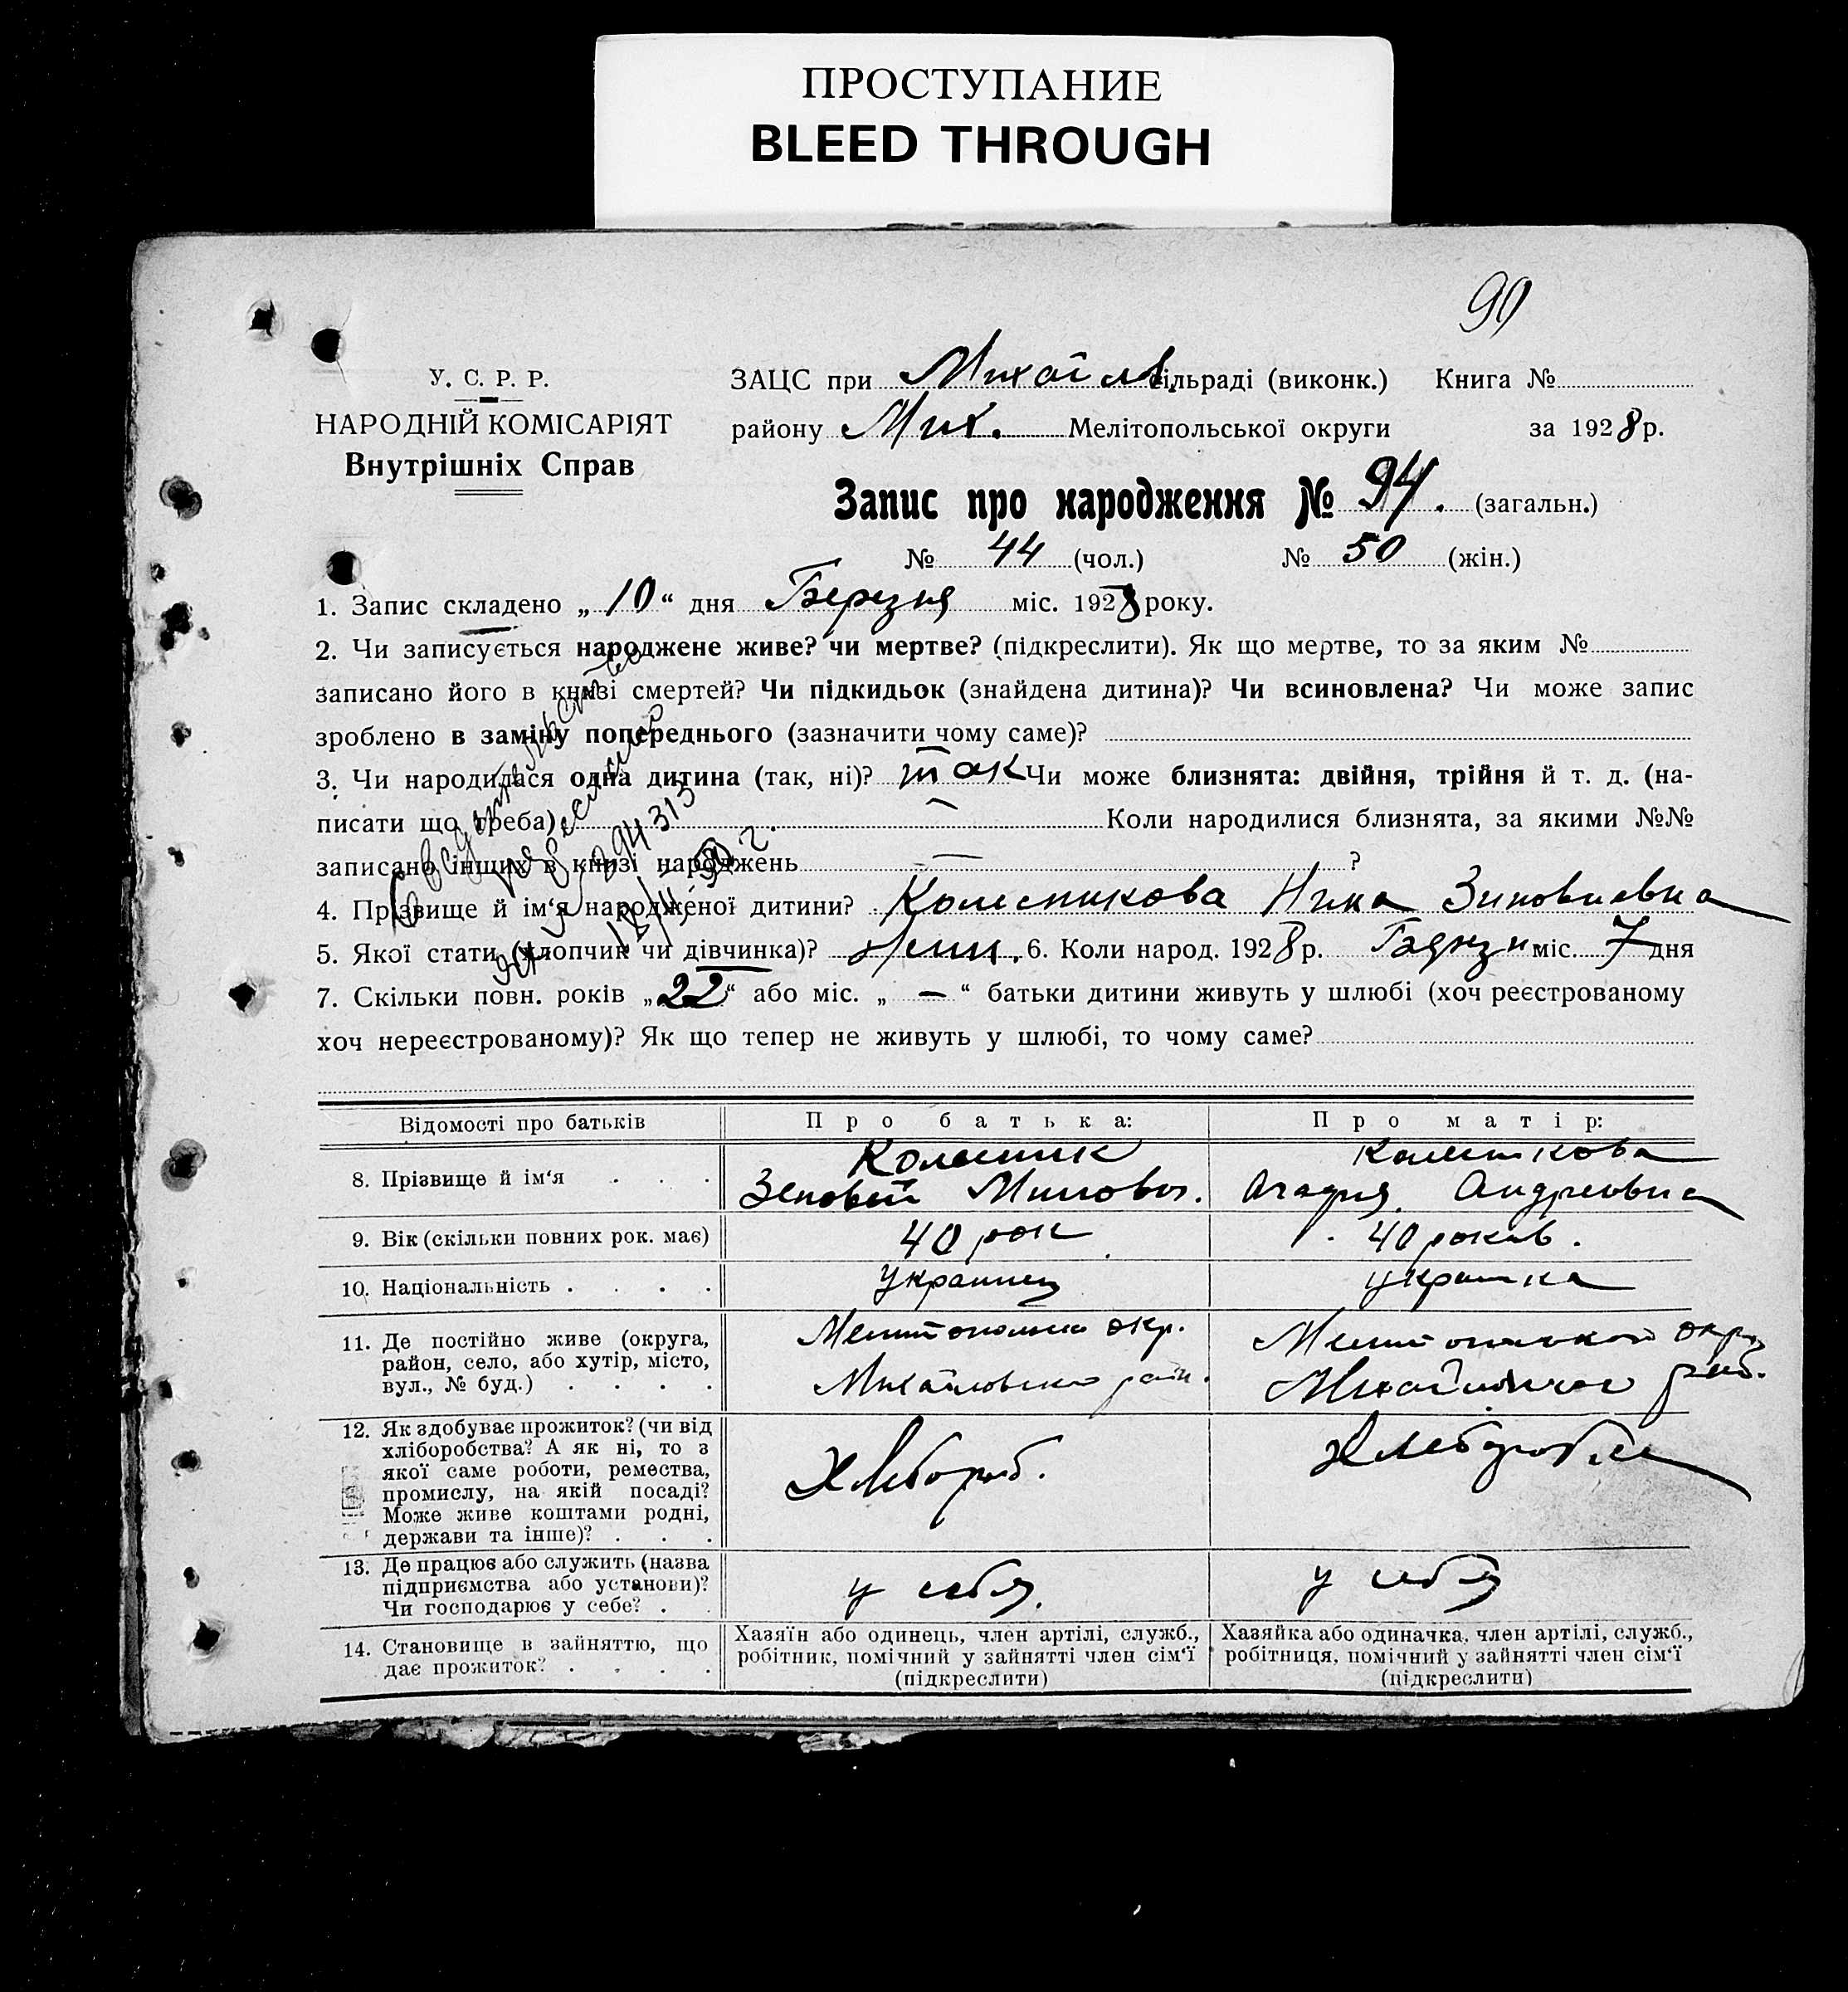 ПРОСТУПАНИЕ
BLEED THROUGH
90
У. С. Р. Р.
НАРОДНІЙ КОМІСАРІЯТ
Внутрішніх Справ
ЗАЦС при Михайлів. сільраді (виконк.) Книга №
району Мих. Мелітопольської округи за 1928 р.
Запис про народження № 94. (загальн.)
№ 44 (чол.) № 50 (жін.)
1. Запис складено „10“ дня Березня міс. 1928 року.
2. Чи записується народжене живе? чи мертве? (підкреслити). Як що мертве, то за яким №
записано його в книзі смертей? Чи підкидьок (знайдена дитина)? Чи всиновлена? Чи може запис
зроблено в заміну попереднього (зазначити чому саме)?
3. Чи народилася одна дитина (так, ні)? так Чи може близнята: двійня, трійня й т. д. (на-
писати що треба) Коли народилися близнята, за якими №№
записано інших в книзі народжень — ?
4. Прізвище й ім‘я народженої дитини? Колесникова Нина Зиновиевна
5. Якої стати (хлопчик чи дівчинка)? 6. Коли народ. 1928 р. міс. 7 дня
7. Скільки повн. років „22“ або міс. „ — “ батьки дитини живуть у шлюбі (хоч реєстрованому
хоч нереєстрованому)? Як що тепер не живуть у шлюбі, то чому саме?
Відомості про батьків Про батька: Про матір:
8. Прізвище й ім‘я . . . Колесник
Андреевна
9. Вік (скільки повних рок. має) 40 рок 40 роков.
10. Національність . . . . Украинец украинка
11. Де постійно живе (округа,
район, село, або хутір, місто,
вул., № буд.) . . . . окр. окр.
Михайловского район.
12. Як здобуває прожиток? (чи від
хліборобства? А як ні, то з
якої саме роботи, ремества,
промислу, на якій посаді?
Може живе коштами родні,
держави та інше)? . . . Хлебороб.
13. Де працює або служить (назва
підприємства або установи)?
Чи господарює у себе? . . у себя. у себя
14. Становище в зайняттю, що
дає прожиток? . . . .
Хазяїн або одинець, член артілі, служб.,
робітник, помічний у зайнятті член сім‘ї
(підкреслити)
Хазяйка або одиначка, член артілі, служб.,
робітниця, помічний у зайнятті член сім‘ї
(підкреслити)